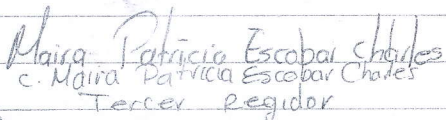 Maira Patricia Escobar Charles
C. Maira Patricia Escobar Charles
Tercer Regidor